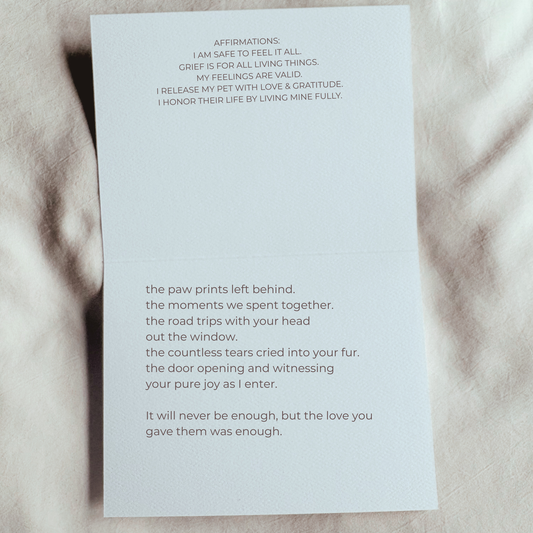 AFFIRMATIONS:
I AM SAFE TO FEEL IT ALL.
GRIEF IS FOR ALL LIVING THINGS.
MY FEELINGS ARE VALID.
I RELEASE MY PET WITH LOVE & GRATITUDE.
I HONOR THEIR LIFE BY LIVING MINE FULLY.
the paw prints left behind.
the moments we spent together.
the road trips with your head
out the window.
the countless tears cried into your fur.
the door opening and witnessing
your pure joy as I enter.
It will never be enough, but the love you
gave them was enough.